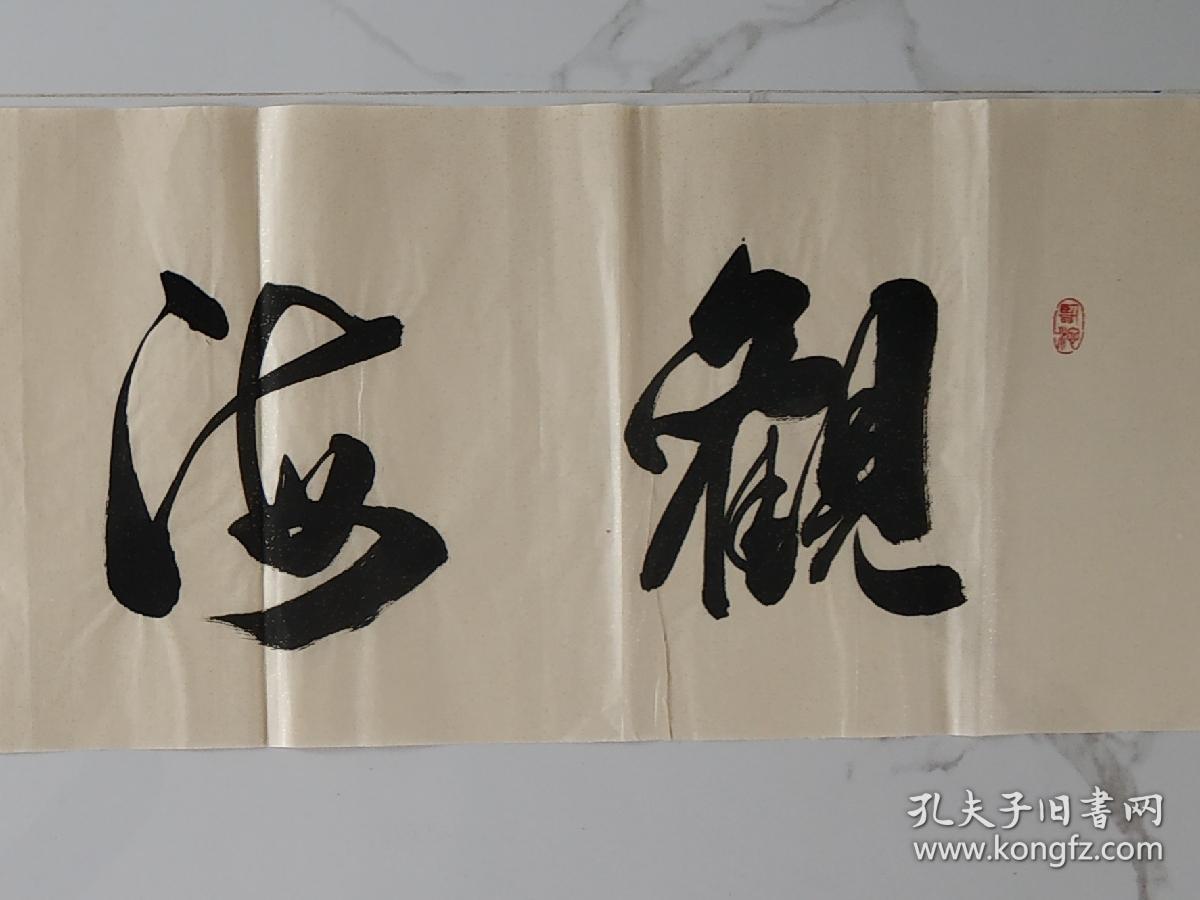 觀海
孔夫子旧書网
www.kongfz.com